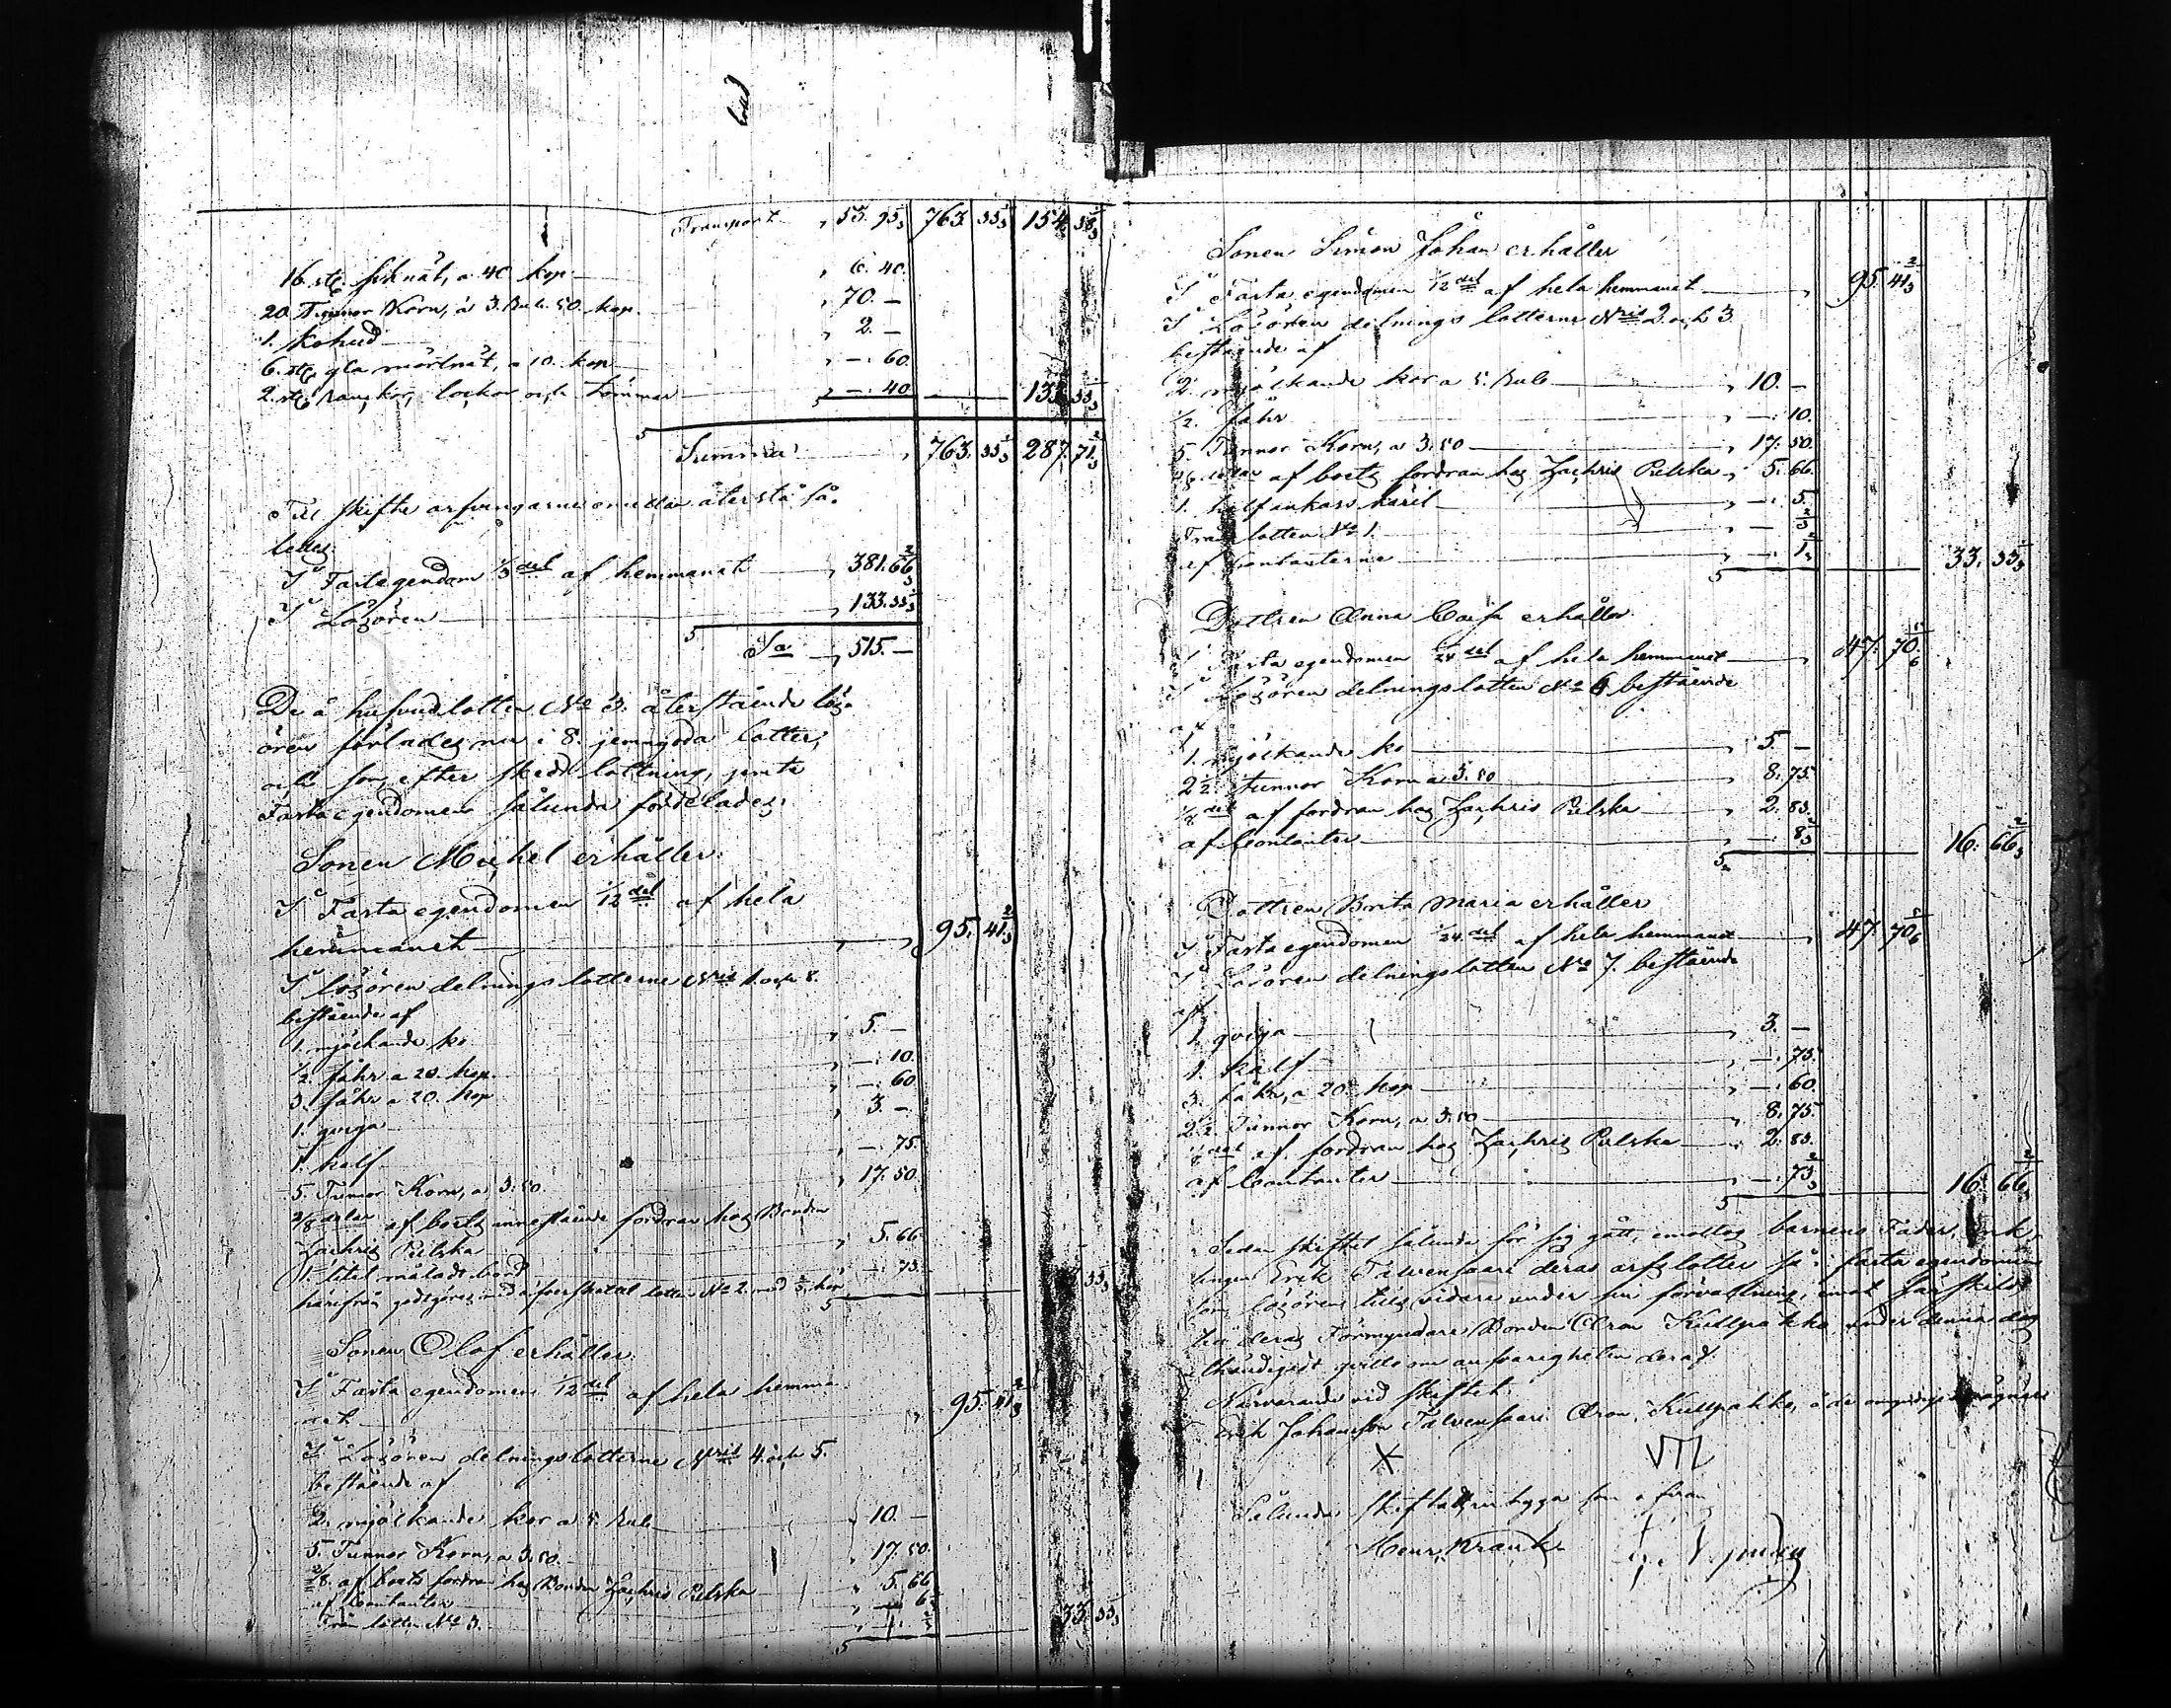 Transport 53. 95 763. 33 1/3 154. 38 1/3
16. st. sik nät, a 40. kop 6. 40.
20. Tunnor Korn, a 3. Rub. 50. kop 70. —
1. kohud 2. —
6. st. gla mörtnät, a 10. kop —. 60
2. st. och tömmar —. 40 133. 33 1/3
Summa 763. 33 1/3 287. 71 2/3
Till skifte arfvingarne emellan återstå så-
ledes
I Fastegendom 1/3 del af hemmanet 381. 66 2/3
I Lösören 133. 33 1/3
Sa 515. —
De å hufvudlotten No 3. återstående lös-
ören förlades nu i 8. jemngoda lotter,
och som efter skedd lottning, jemte
Fasta egendomen sålunda fördelades;
Sonen Michel erhåller:
I Fasta egendomen 1/12 del af hela
hemmanet 95. 41 2/3
I lösören delnings lotterne Nris 1. och 8.
bestående af
1. mjölkande ko 5. —
1/2. fåhr a 20. kop. —. 10.
3. fåhr a 20. kop —. 60
1. qviga 3. —
1. kalf —. 75.
5. Tunnor Korn, a 3. 50 17. 50.
2/8 delar af boets innestående fordran hos Bonden
Zachris Pelska 5. 66.
1. litet måladt bord —. 75.
härifrån godtgöres lotten No 2. med 2/3 kop 33 1/3
Sonen Olof erhåller
I Fasta egendomen 1/12 del af hela hemma-
net 95. 41 2/3
I Lösören delningslotterne Nris 4. och 5.
bestående af
2. mjölkande kor a 5. Rub 10. —
5. Tunnor Korn, a 3. 50. 17. 50.
2/8. af boets fordran hos Bonden Zachris Pelska 5. 66
af Contanter
Från lotten No 3. 33. 33 1/3
Sonen Simon Johan erhåller
I Fasta egendomen 1/12 del af hela hemmanet 95. 41 2/3
I Lösören delnings lotterne Nris 2. och 3.
bestående af
2. mjölkande kor a 5. Rub 10. —
1/2. fåhr —. 10.
5. Tunnor Korn, a 3. 50 17. 50
2/8 delar af boets fordran hos Zachris Pelska 5. 66.
1. halfankars käril —. 5.
Från lotten No 1. —. 2/3
af Contanterne —. 1 33. 33 1/3
Dottren Anna Caisa erhåller
I Fasta egendomen 1/24 del af hela hemmanet 47. 70 5/6
I Lösören delningslotten No 6 bestående
af
1. mjölkande ko 5. —
2 1/2. tunnor Korn a 3. 50 8. 75.
1/8 del af fordran hos Zachris Pelska 2. 83.
af Contanter —. 8 2/3 16. 66 2/3
Dottren Brita Maria erhåller
I Fasta egendomen 1/24 del af hela hemmanet 47. 70 5/6
I Lösören delningslotten No 7. bestående
af
1. qviga 3. —
1. kalf —. 75.
3. fåhr, a 20. kop —. 60
2 1/2. Tunnor Korn, a 3. 50 8. 75
1/8 del af fordran hos Zachris Pelska 2. 83.
af Contanter —. 73 2/3 16. 66 2/3
Sedan skiftet sålunda för sig gått, emottog barnens Fader,
Erik Talvensaari deras arfslotter så i fasta egendomen
som lösören tills vidare under sin förvaltning, emot
deras Förmyndare Bonden Aron Kullpakka under denna dag
qvitto om ansvarigheten deraf.
Närvarande vid skiftet:
Erik Johansson Talvensaari Aron Kullpakka, å de omyndiges vägnar
Sålunda skiftadt
Henr. Kranck